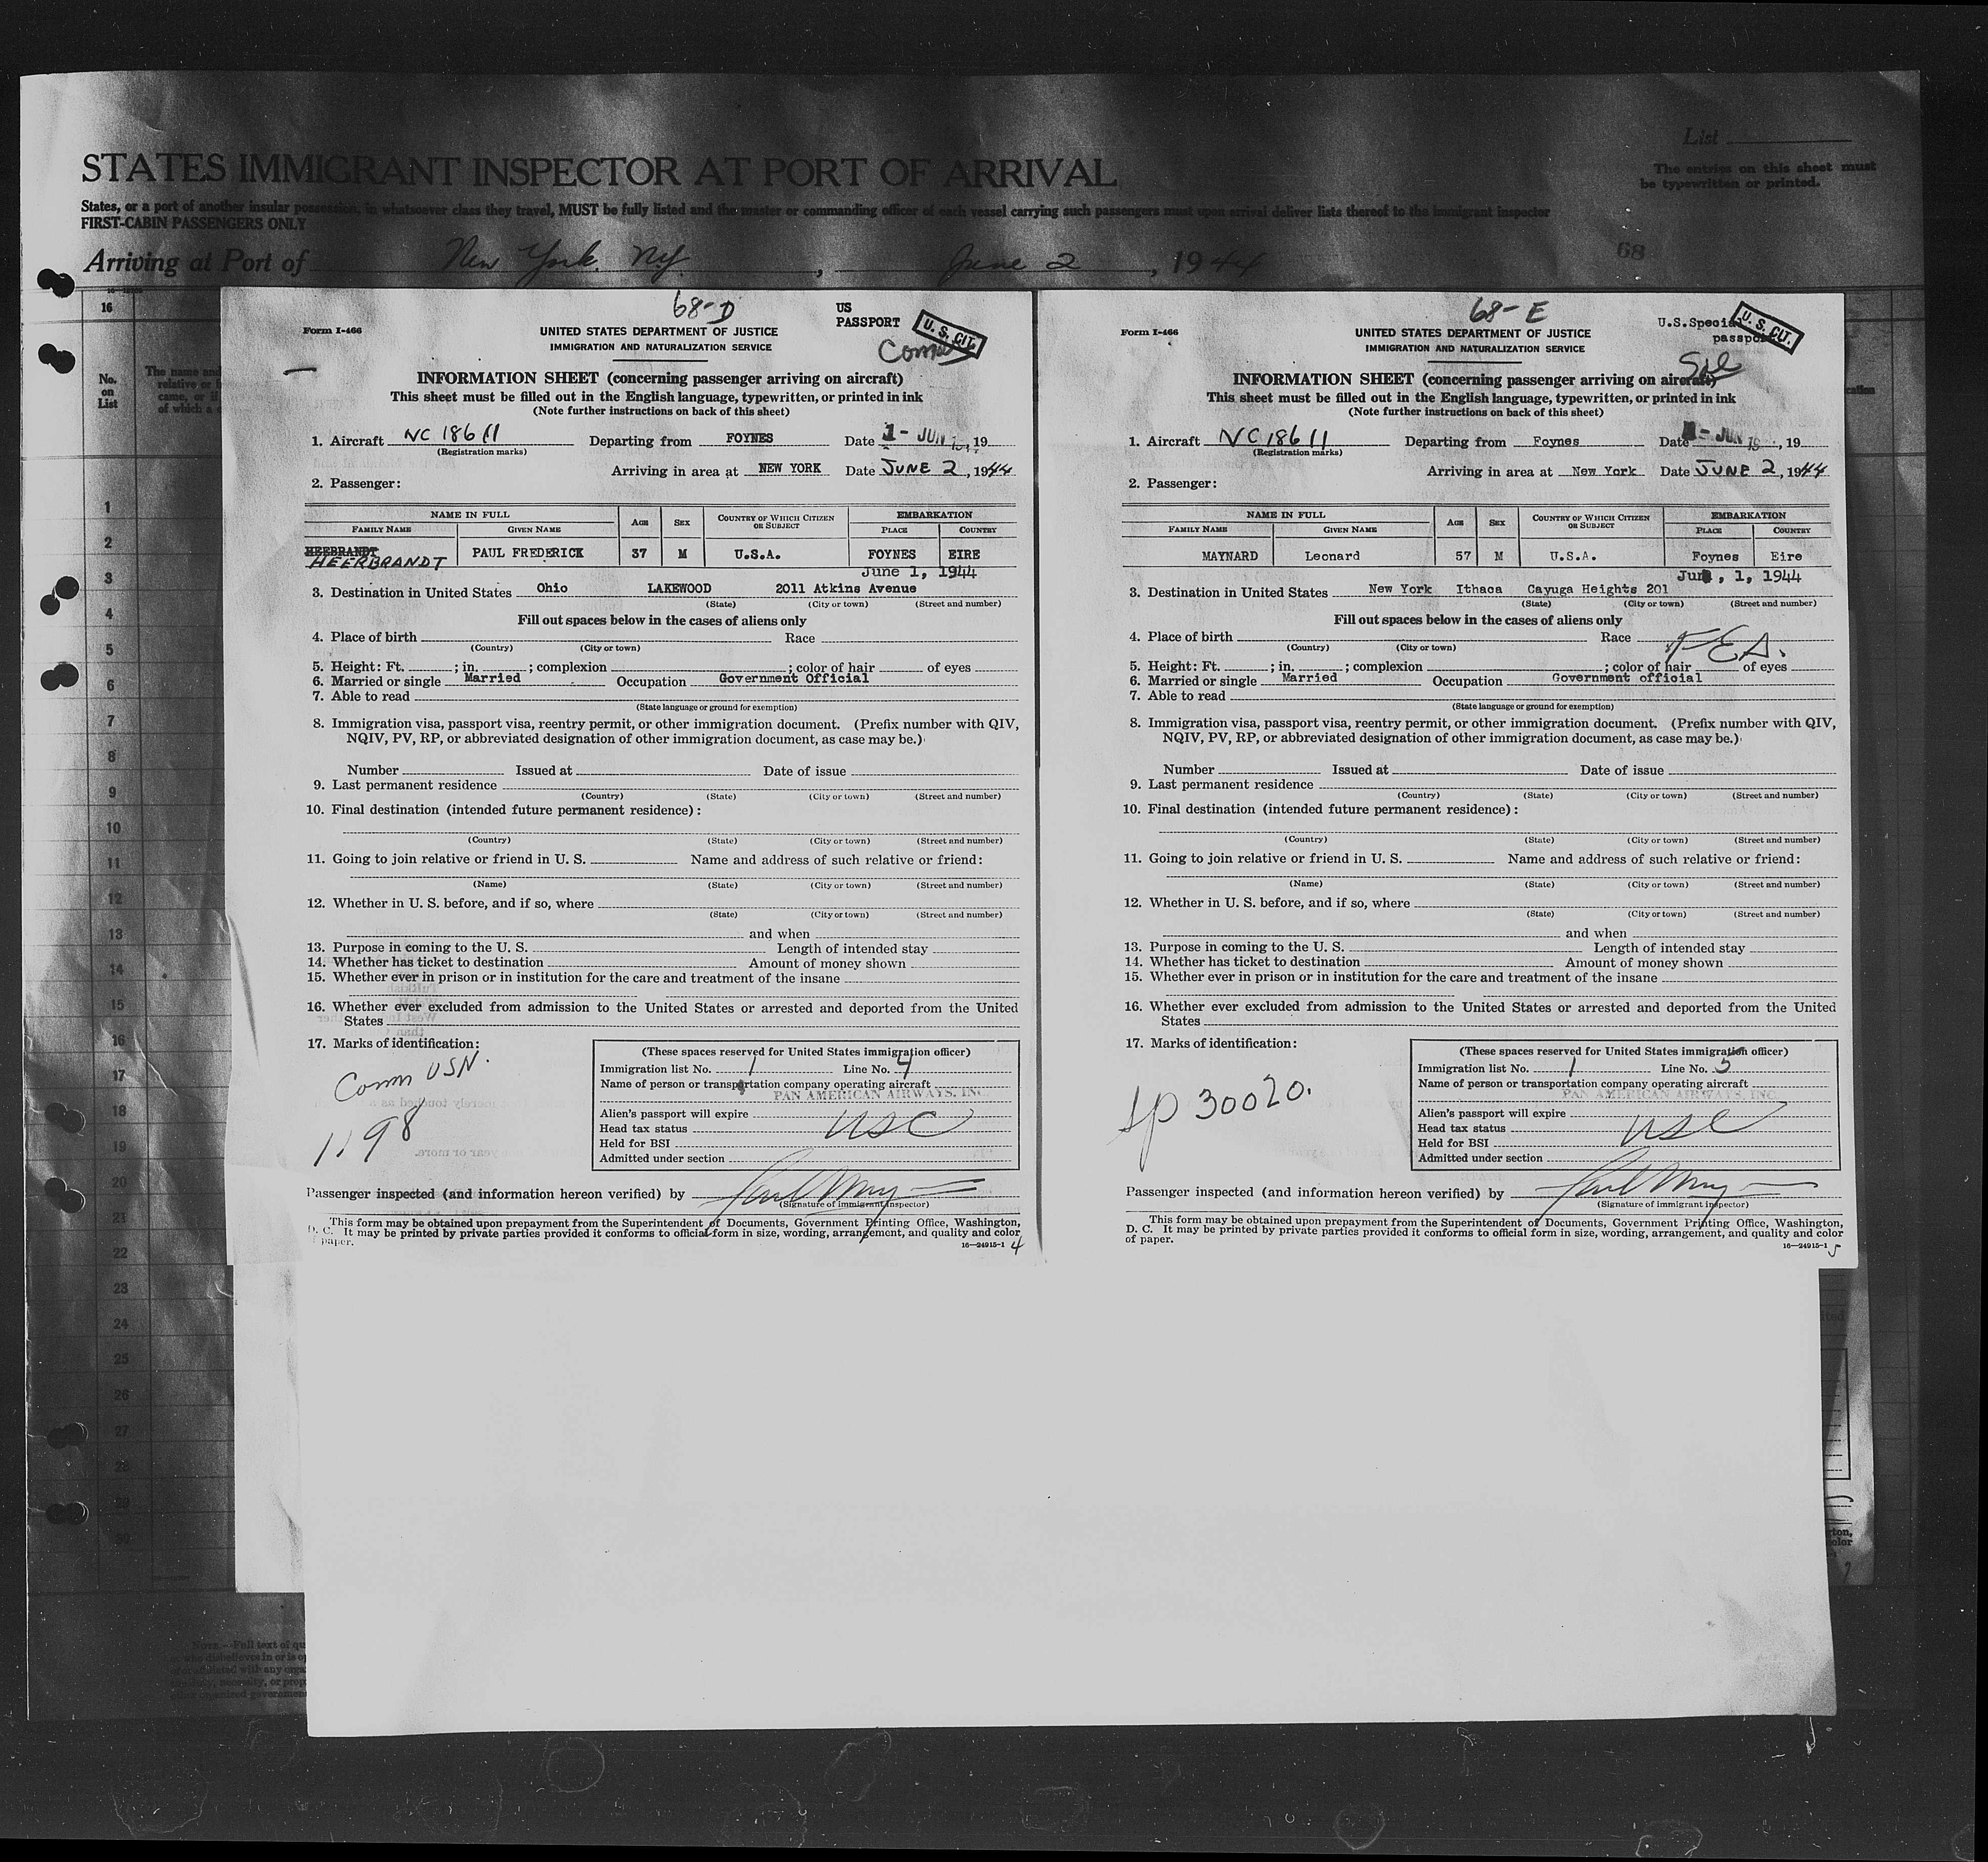 List
STATES IMMIGRANT INSPECTOR AT PORT OF ARRIVAL
The entries on this sheet must
be typewritten or printed.
States, or a port of another insular possession, in whatsoever class they travel, MUST be fully listed and the master or commanding officer of each vessel carrying such passengers must upon arrival deliver lists thereof to the immigrant inspector
FIRST-CABIN PASSENGERS ONLY
68
Arriving at Port of New York, NY, June 2, 1944
16
No.
on
List
1
2
3
4
5
6
7
8
9
10
11
12
13
14
15
16
17
18
19
20
21
22
23
24
25
26
27
28
29
30
68-D
US
PASSPORT
U. S. CIT.
Form I-466
UNITED STATES DEPARTMENT OF JUSTICE
IMMIGRATION AND NATURALIZATION SERVICE
INFORMATION SHEET (concerning passenger arriving on aircraft)
This sheet must be filled out in the English language, typewritten, or printed in ink
(Note further instructions on back of this sheet)
1. Aircraft NC 18611 Departing from FOYNES Date 1 - JUN 19, 19
(Registration marks)
Arriving in area at NEW YORK Date JUNE 2, 1944
2. Passenger:
NAME IN FULL AGE SEX COUNTRY OF WHICH CITIZEN OR SUBJECT EMBARKATION
FAMILY NAME GIVEN NAME PLACE COUNTRY
HEEBRANDT
HEERBRANDT PAUL FREDERICK 37 M U.S.A. FOYNES EIRE
June 1, 1944
3. Destination in United States Ohio LAKEWOOD 2011 Atkins Avenue
(State) (City or town) (Street and number)
Fill out spaces below in the cases of aliens only
4. Place of birth Race
(Country) (City or town)
5. Height: Ft. ; in. ; complexion ; color of hair of eyes
6. Married or single Married Occupation Government Official
7. Able to read
(State language or ground for exemption)
8. Immigration visa, passport visa, reentry permit, or other immigration document. (Prefix number with QIV,
NQIV, PV, RP, or abbreviated designation of other immigration document, as case may be.)
Number Issued at Date of issue
9. Last permanent residence
(Country) (State) (City or town) (Street and number)
10. Final destination (intended future permanent residence):
(Country) (State) (City or town) (Street and number)
11. Going to join relative or friend in U. S. Name and address of such relative or friend:
(Name) (State) (City or town) (Street and number)
12. Whether in U. S. before, and if so, where
(State) (City or town) (Street and number)
and when
13. Purpose in coming to the U. S. Length of intended stay
14. Whether has ticket to destination Amount of money shown
15. Whether ever in prison or in institution for the care and treatment of the insane
16. Whether ever excluded from admission to the United States or arrested and deported from the United
States
17. Marks of identification:
Comm USN.
1198
(These spaces reserved for United States immigration officer)
Immigration list No. 1 Line No. 4
Name of person or transportation company operating aircraft
PAN AMERICAN AIRWAYS, INC.
Alien's passport will expire
USC
Head tax status
Held for BSI
Admitted under section
Passenger inspected (and information hereon verified) by
(Signature of immigrant inspector)
This form may be obtained upon prepayment from the Superintendent of Documents, Government Printing Office, Washington,
D. C. It may be printed by private parties provided it conforms to official form in size, wording, arrangement, and quality and color
of paper.
16—24915-1 4
68-E
U.S.Special
passport
U. S. CIT.
Form I-466
UNITED STATES DEPARTMENT OF JUSTICE
IMMIGRATION AND NATURALIZATION SERVICE
INFORMATION SHEET (concerning passenger arriving on aircraft)
This sheet must be filled out in the English language, typewritten, or printed in ink
(Note further instructions on back of this sheet)
1. Aircraft NC 18611 Departing from Foynes Date 1 - JUN 19, 19
(Registration marks)
Arriving in area at New York Date JUNE 2, 1944
2. Passenger:
NAME IN FULL AGE SEX COUNTRY OF WHICH CITIZEN OR SUBJECT EMBARKATION
FAMILY NAME GIVEN NAME PLACE COUNTRY
MAYNARD Leonard 57 M U.S.A. Foynes Eire
June, 1, 1944
3. Destination in United States New York Ithaca Cayuga Heights 201
(State) (City or town) (Street and number)
Fill out spaces below in the cases of aliens only
4. Place of birth Race
FEA.
(Country) (City or town)
5. Height: Ft. ; in. ; complexion ; color of hair of eyes
6. Married or single Married Occupation Government official
7. Able to read
(State language or ground for exemption)
8. Immigration visa, passport visa, reentry permit, or other immigration document. (Prefix number with QIV,
NQIV, PV, RP, or abbreviated designation of other immigration document, as case may be.)
Number Issued at Date of issue
9. Last permanent residence
(Country) (State) (City or town) (Street and number)
10. Final destination (intended future permanent residence):
(Country) (State) (City or town) (Street and number)
11. Going to join relative or friend in U. S. Name and address of such relative or friend:
(Name) (State) (City or town) (Street and number)
12. Whether in U. S. before, and if so, where
(State) (City or town) (Street and number)
and when
13. Purpose in coming to the U. S. Length of intended stay
14. Whether has ticket to destination Amount of money shown
15. Whether ever in prison or in institution for the care and treatment of the insane
16. Whether ever excluded from admission to the United States or arrested and deported from the United
States
17. Marks of identification:
Sp 30020.
(These spaces reserved for United States immigration officer)
Immigration list No. 1 Line No. 5
Name of person or transportation company operating aircraft
PAN AMERICAN AIRWAYS, INC.
Alien's passport will expire
USC
Head tax status
Held for BSI
Admitted under section
Passenger inspected (and information hereon verified) by
(Signature of immigrant inspector)
This form may be obtained upon prepayment from the Superintendent of Documents, Government Printing Office, Washington,
D. C. It may be printed by private parties provided it conforms to official form in size, wording, arrangement, and quality and color
of paper.
16—24915-1 5